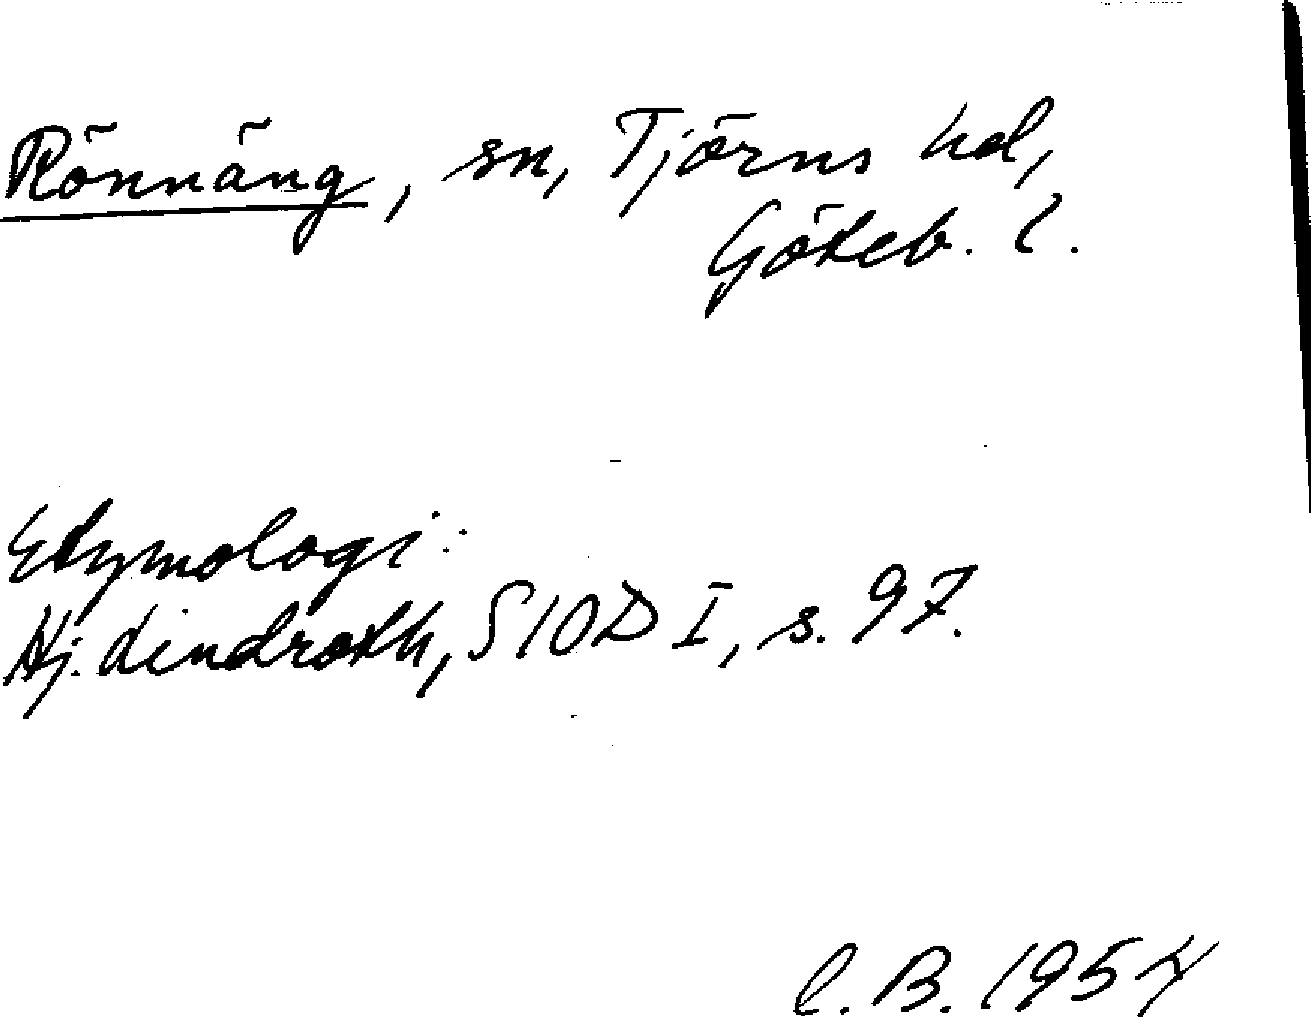 Rönnäng, sn, Tjörns hd,
Göteb. l.
Etymologi:
Hj. Lindroth, SIOD I, s. 97.
C. B. 1954